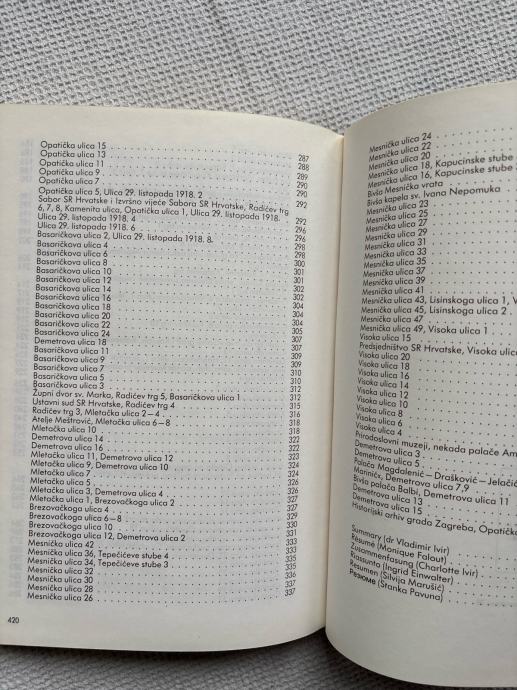 Opatička ulica 15 . . . 287
Opatička ulica 13 . . . 288
Opatička ulica 11 . . . 289
Opatička ulica 9 . . . 290
Opatička ulica 7 . . . 290
Opatička ulica 5, Ulica 29. listopada 1918. 2 . . . 292
Sabor SR Hrvatske i Izvršno vijeće Sabora SR Hrvatske, Radićev trg
6, 7, 8, Kamenita ulica, Opatička 1, Ulica 29. listopada 1918. . . . 292
Ulica 29. listopada 1918. 4 . . . 296
Ulica 29. listopada 1918. 6 . . . 296
Basaričkova ulica 2, Ulica 29. listopada 1918. 8. . . . 298
Basaričkova ulica 4 . . . 298
Basaričkova ulica 6 . . . 300
Basaričkova ulica 8 . . . 300
Basaričkova ulica 10 . . . 301
Basaričkova ulica 12 . . . 302
Basaričkova ulica 14 . . . 302
Basaričkova ulica 16 . . . 304
Basaričkova ulica 18 . . . 304
Basaričkova ulica 20 . . . 304
Basaričkova ulica 22 . . . 305
Basaričkova ulica 24 . . . 307
Demetrova ulica 18 . . . 307
Basaričkova ulica 11 . . . 309
Basaričkova ulica 9 . . . 310
Basaričkova ulica 7 . . . 310
Basaričkova ulica 5 . . . 312
Basaričkova ulica 3 . . . 312
Župni dvor sv. Marka, Radićev trg 5, Basaričkova ulica 1 . . . 312
Ustavni sud SR Hrvatske, Radićev trg 4 . . . 315
Radićev trg 3, Mletačka ulica 2—4 . . . 316
Atelje Meštrović, Mletačka ulica 6—8 . . . 318
Mletačka ulica 10 . . . 318
Demetrova ulica 14 . . . 322
Demetrova ulica 16 . . . 322
Mletačka ulica 11, Demetrova ulica 12 . . . 323
Mletačka ulica 9, Demetrova ulica 10 . . . 324
Mletačka ulica 7 . . . 324
Mletačka ulica 5 . . .
Mletačka ulica 3, Demetrova ulica 4 . . . 326
Mletačka ulica 1, Brezovačkoga ulica 2 . . . 327
Brezovačkoga ulica 4 . . . 327
Brezovačkoga ulica 6—8 . . . 329
Brezovačkoga ulica 10 . . . 330
Brezovačkoga ulica 12, Demetrova ulica 2 . . . 333
Mesnička ulica 42 . . . 333
Mesnička ulica 36, Tepečićeve stube 4 . . . 333
Mesnička ulica 34, Tepečićeve stube 3 . . . 335
Mesnička ulica 32 . . . 335
Mesnička ulica 30 . . . 336
Mesnička ulica 28 . . . 337
Mesnička ulica 26 . . . 337
420
Mesnička ulica 24
Mesnička ulica 22
Mesnička ulica 20
Mesnička ulica 18, Kapucinske stube
Mesnička ulica 16, Kapucinske stube
Bivša Mesnička vrata
Bivša kapela sv. Ivana Nepomuka
Mesnička ulica 23
Mesnička ulica 25
Mesnička ulica 27
Mesnička ulica 29
Mesnička ulica 31
Mesnička ulica 33
Mesnička ulica 35
Mesnička ulica 37
Mesnička ulica 39
Mesnička ulica 41
Mesnička ulica 43, Lisinskoga ulica 1, V
Mesnička ulica 45, Lisinskoga ulica 2
Mesnička ulica 47
Mesnička ulica 49, Visoka ulica 1
Predsjedništvo SR Hrvatske, Visoka ulica
Visoka ulica 20
Visoka ulica 18
Visoka ulica 16
Visoka ulica 14
Visoka ulica 12
Visoka ulica 10
Visoka ulica 8
Visoka ulica 6
Visoka ulica 4
Prirodoslovni muzeji, nekada palače Am
Demetrova ulica 3
Demetrova ulica 5
Palača Magdalenić—Drašković—Jelačić
Marinić, Demetrova ulica 7,9
Bivša palača Balbi, Demetrova ulica 11
Demetrova ulica 13
Demetrova ulica 15
Historijski arhiv grada Zagreba, Opatičk
Summary (dr Vladimir Ivir)
Résumé (Monique Falout)
Zusammenfassung (Charlotte Ivir)
Riassunto (Ingrid Einwalter)
Resumen (Silvija Marušić)
Резюме (Stanka Pavuna)